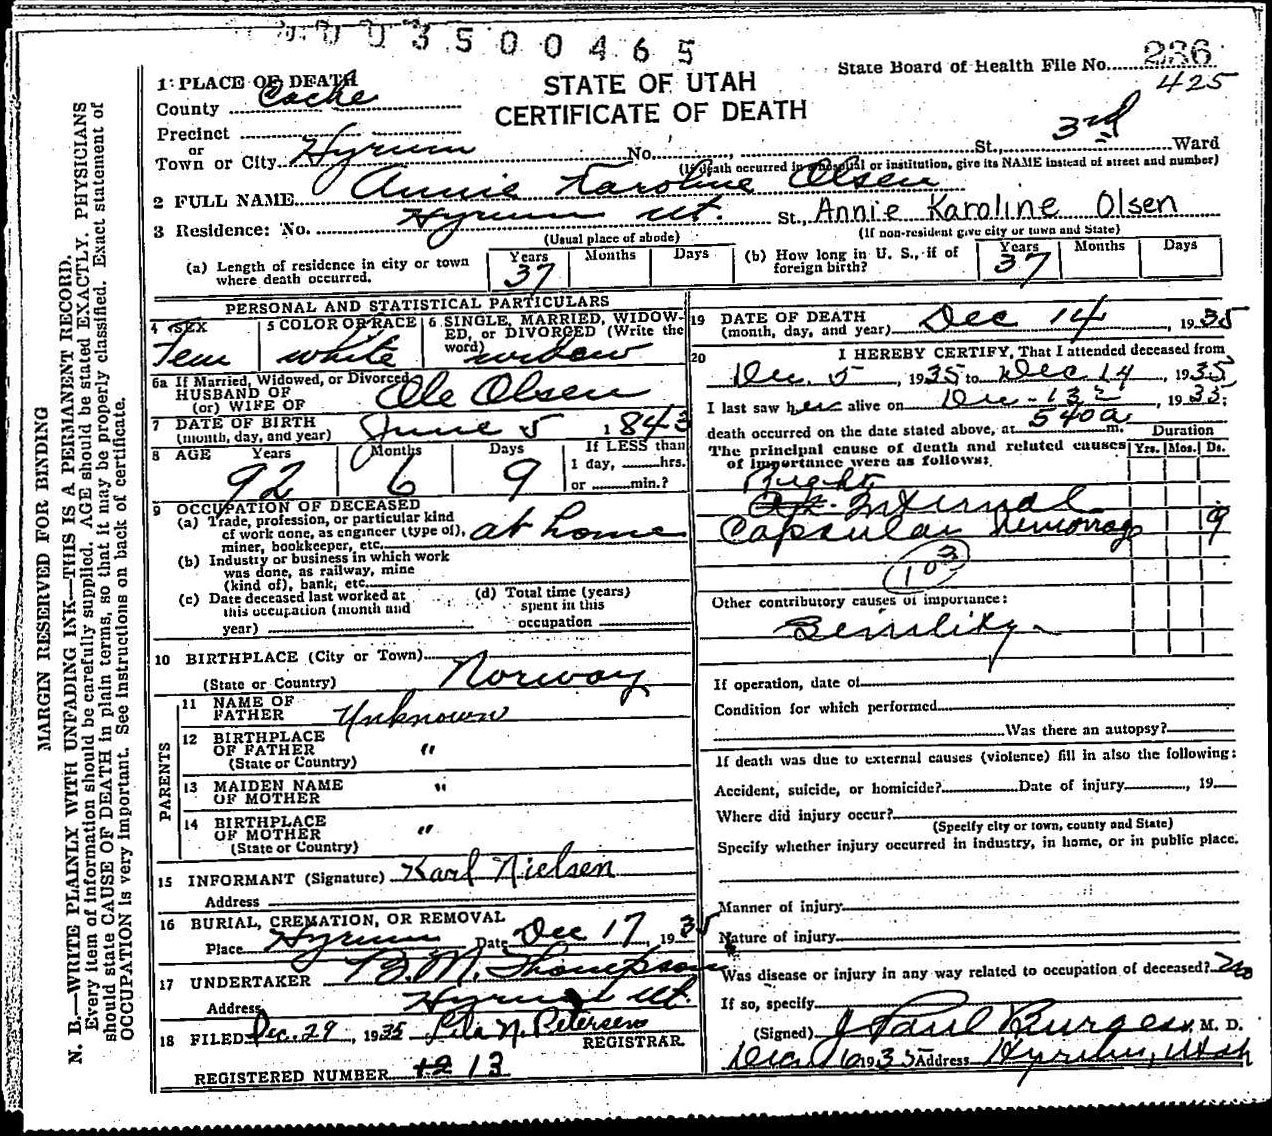 003500465
State Board of Health File No. 236
425
STATE OF UTAH
CERTIFICATE OF DEATH
1 PLACE OF DEATH
County Cache
Precinct
or
Town or City Hyrum No. , St., 3rd Ward
(If death occurred in a hospital or institution, give its NAME instead of street and number)
2 FULL NAME Annie Karoline Olsen
3 Residence: No. Hyrum Ut. St., Annie Karoline Olsen
(Usual place of abode) (If non-resident give city or town and State)
(a) Length of residence in city or town where death occurred. Years 37 Months Days (b) How long in U. S., if of foreign birth? Years 37 Months Days
PERSONAL AND STATISTICAL PARTICULARS
4 SEX Fem
5 COLOR OR RACE white
6 SINGLE, MARRIED, WIDOW-
ED, or DIVORCED (Write the
word) widow
6a If Married, Widowed, or Divorced
HUSBAND OF
(or) WIFE OF Ole Olsen
7 DATE OF BIRTH
(month, day, and year) June 5 1843
8 AGE Years 92 Months 6 Days 9 If LESS than
1 day, hrs.
or min.?
9 OCCUPATION OF DECEASED
(a) Trade, profession, or particular kind
of work done, as engineer (type of),
miner, bookkeeper, etc. at home
(b) Industry or business in which work
was done, as railway, mine
(kind of), bank, etc.
(c) Date deceased last worked at
this occupation (month and
year)
(d) Total time (years)
spent in this
occupation
10 BIRTHPLACE (City or Town)
(State or Country) Norway
PARENTS
11 NAME OF
FATHER Unknown
12 BIRTHPLACE
OF FATHER "
(State or Country)
13 MAIDEN NAME
OF MOTHER "
14 BIRTHPLACE
OF MOTHER "
(State or Country)
15 INFORMANT (Signature) Karl Nielsen
Address
16 BURIAL, CREMATION, OR REMOVAL
Place Hyrum Date Dec 17, 1935
17 UNDERTAKER B. M. Thompson
Address Hyrum Ut.
18 FILED Dec. 29, 1935 Lila N. Petersen
REGISTRAR
REGISTERED NUMBER 13
19 DATE OF DEATH
(month, day, and year) Dec 14, 1935
20 I HEREBY CERTIFY, That I attended deceased from
Dec. 5, 1935 to Dec 14, 1935
I last saw her alive on Dec - 13, 1935;
death occurred on the date stated above, at 540a m. Duration
The principal cause of death and related causes Yrs. Mos. Ds.
of importance were as follows:
Right
Internal
Capsular Hemorrage 9
103
Other contributory causes of importance:
Senility
If operation, date of
Condition for which performed
Was there an autopsy?
If death was due to external causes (violence) fill in also the following:
Accident, suicide, or homicide? Date of injury , 19
Where did injury occur?
(Specify city or town, county and State)
Specify whether injury occurred in industry, in home, or in public place.
Manner of injury
Nature of injury
Was disease or injury in any way related to occupation of deceased? no
If so, specify
(Signed) J Paul Burgess, M. D.
Dec 16 1935 Address Hyrum, Utah
MARGIN RESERVED FOR BINDING
N. B.—WRITE PLAINLY WITH UNFADING INK—THIS IS A PERMANENT RECORD.
Every item of information should be carefully supplied. AGE should be stated EXACTLY. PHYSICIANS
should state CAUSE OF DEATH in plain terms, so that it may be properly classified. Exact statement of
OCCUPATION is very important. See instructions on back of certificate.